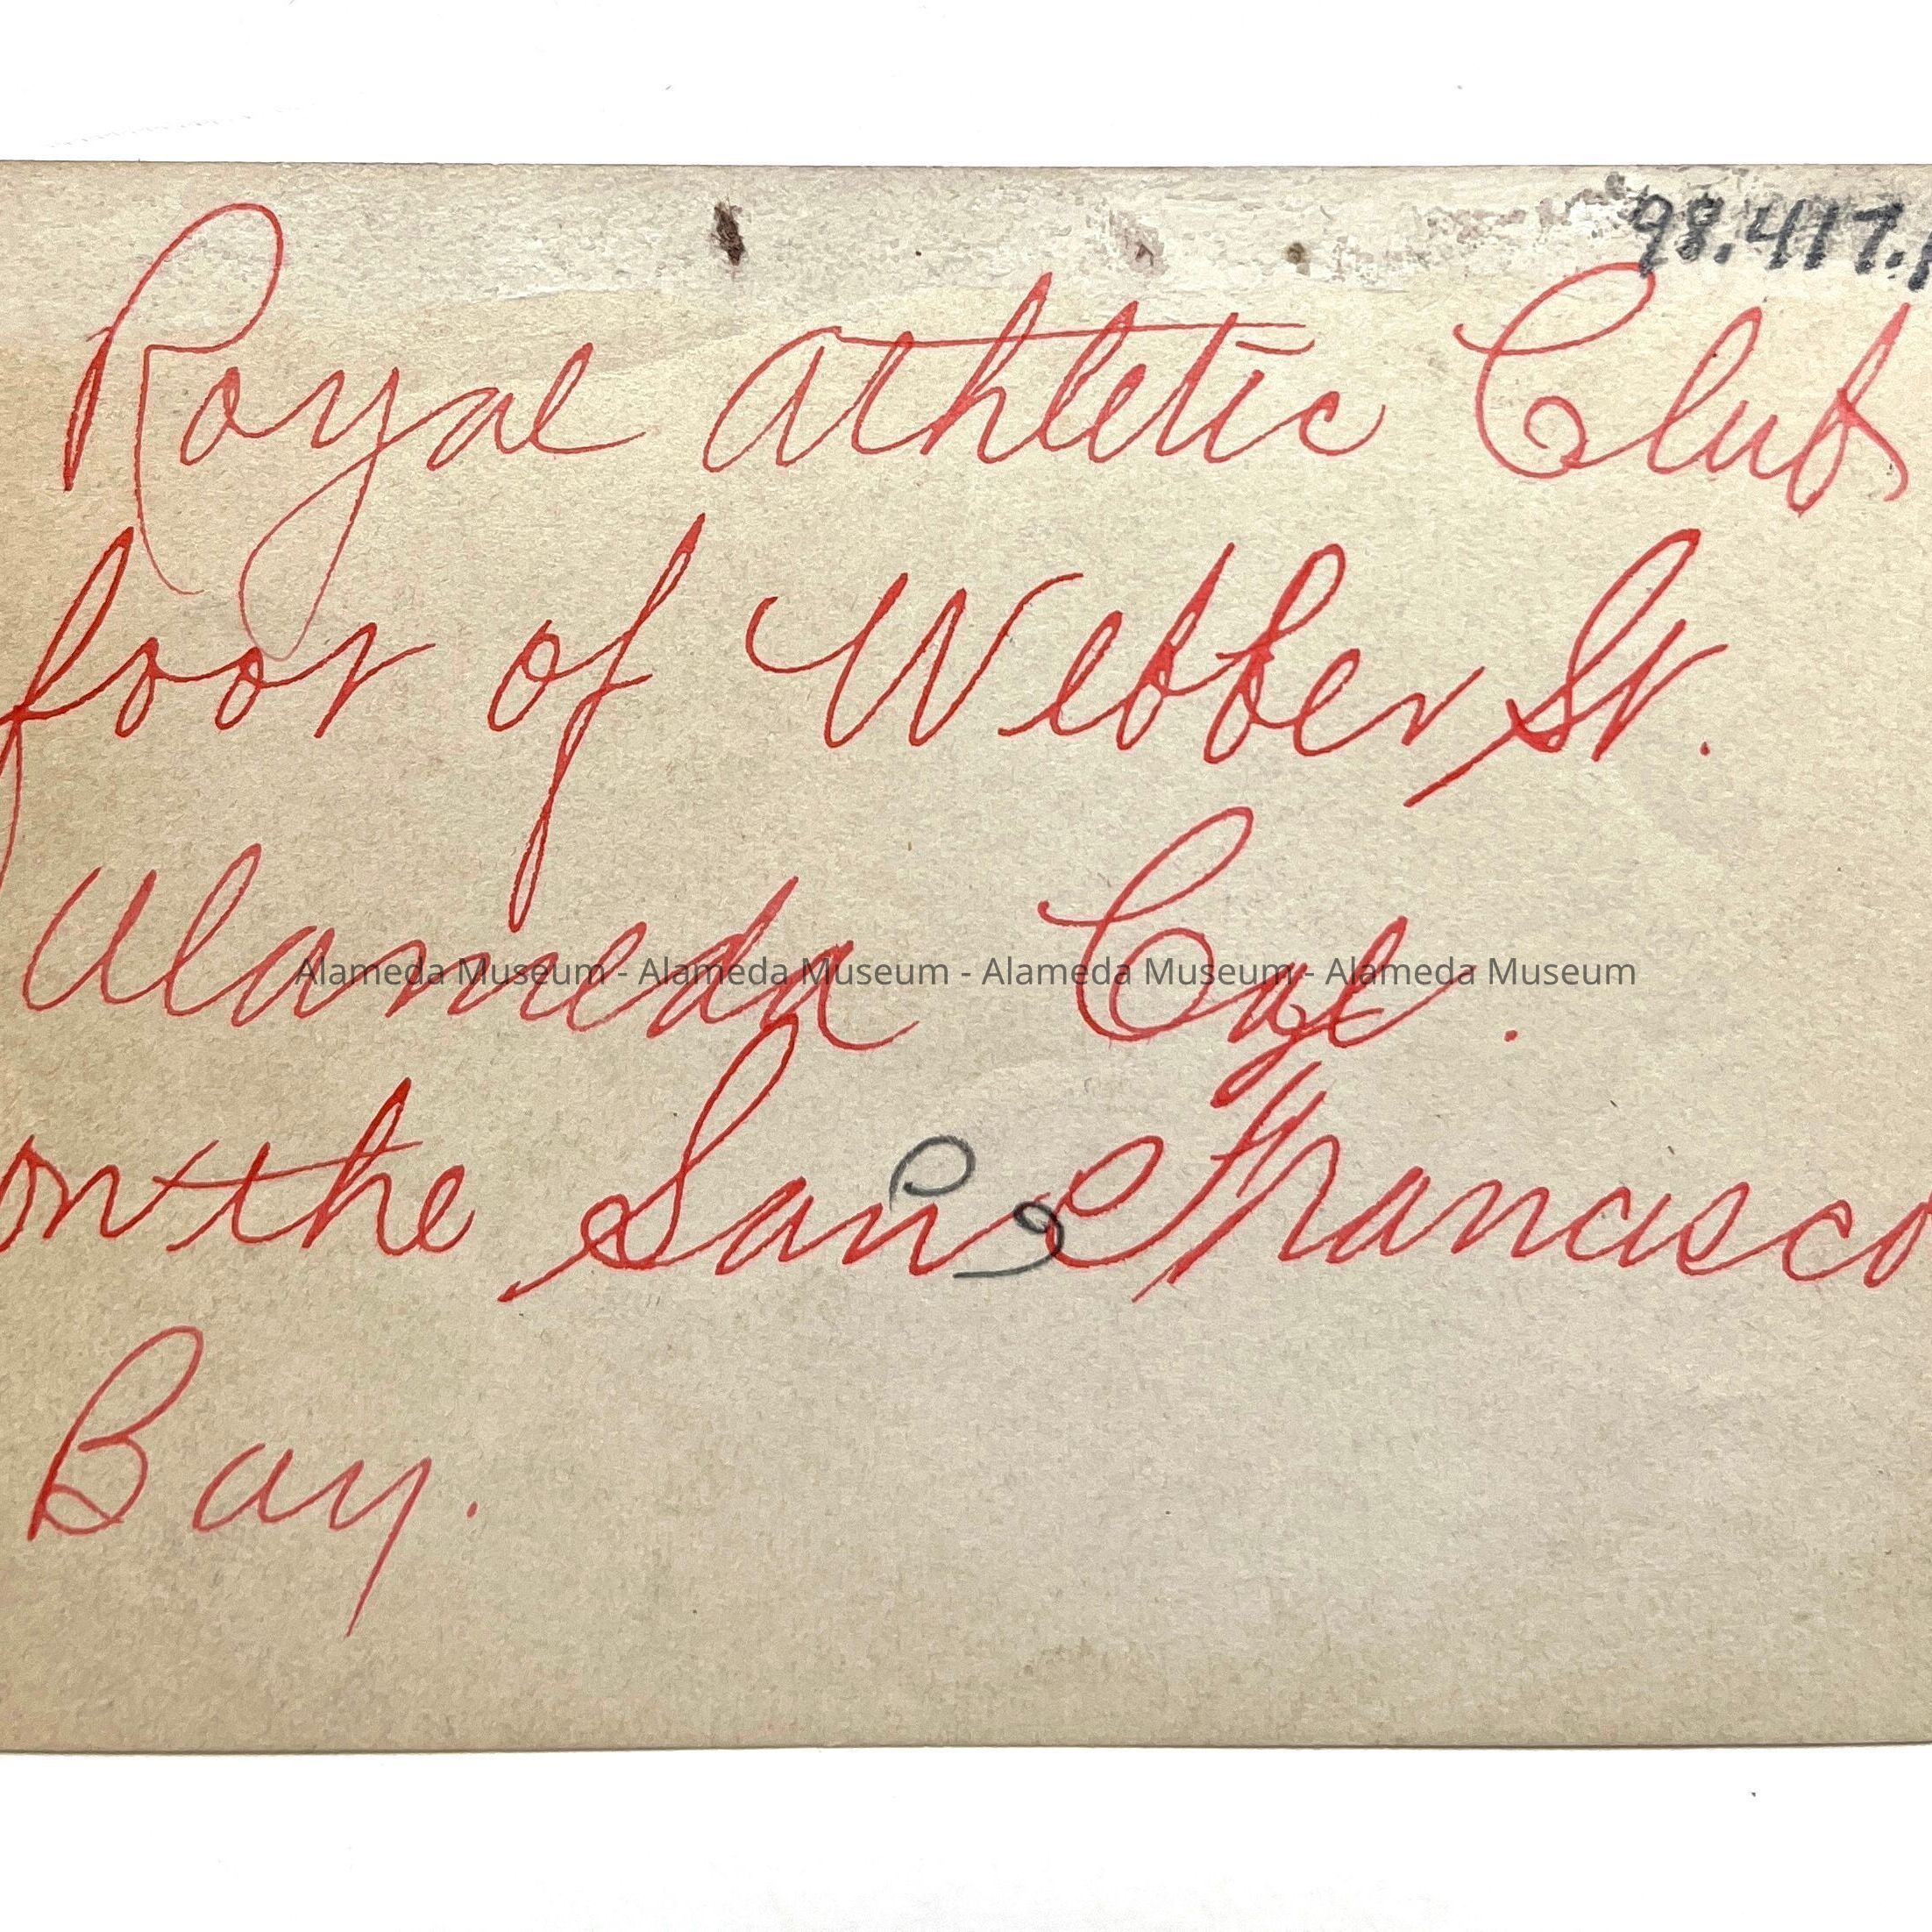 98.417.1
Royal Athletic Club
foot of Webber St.
Alameda Cal.
on the San Francisco
Bay.
Alameda Museum - Alameda Museum - Alameda Museum - Alameda Museum